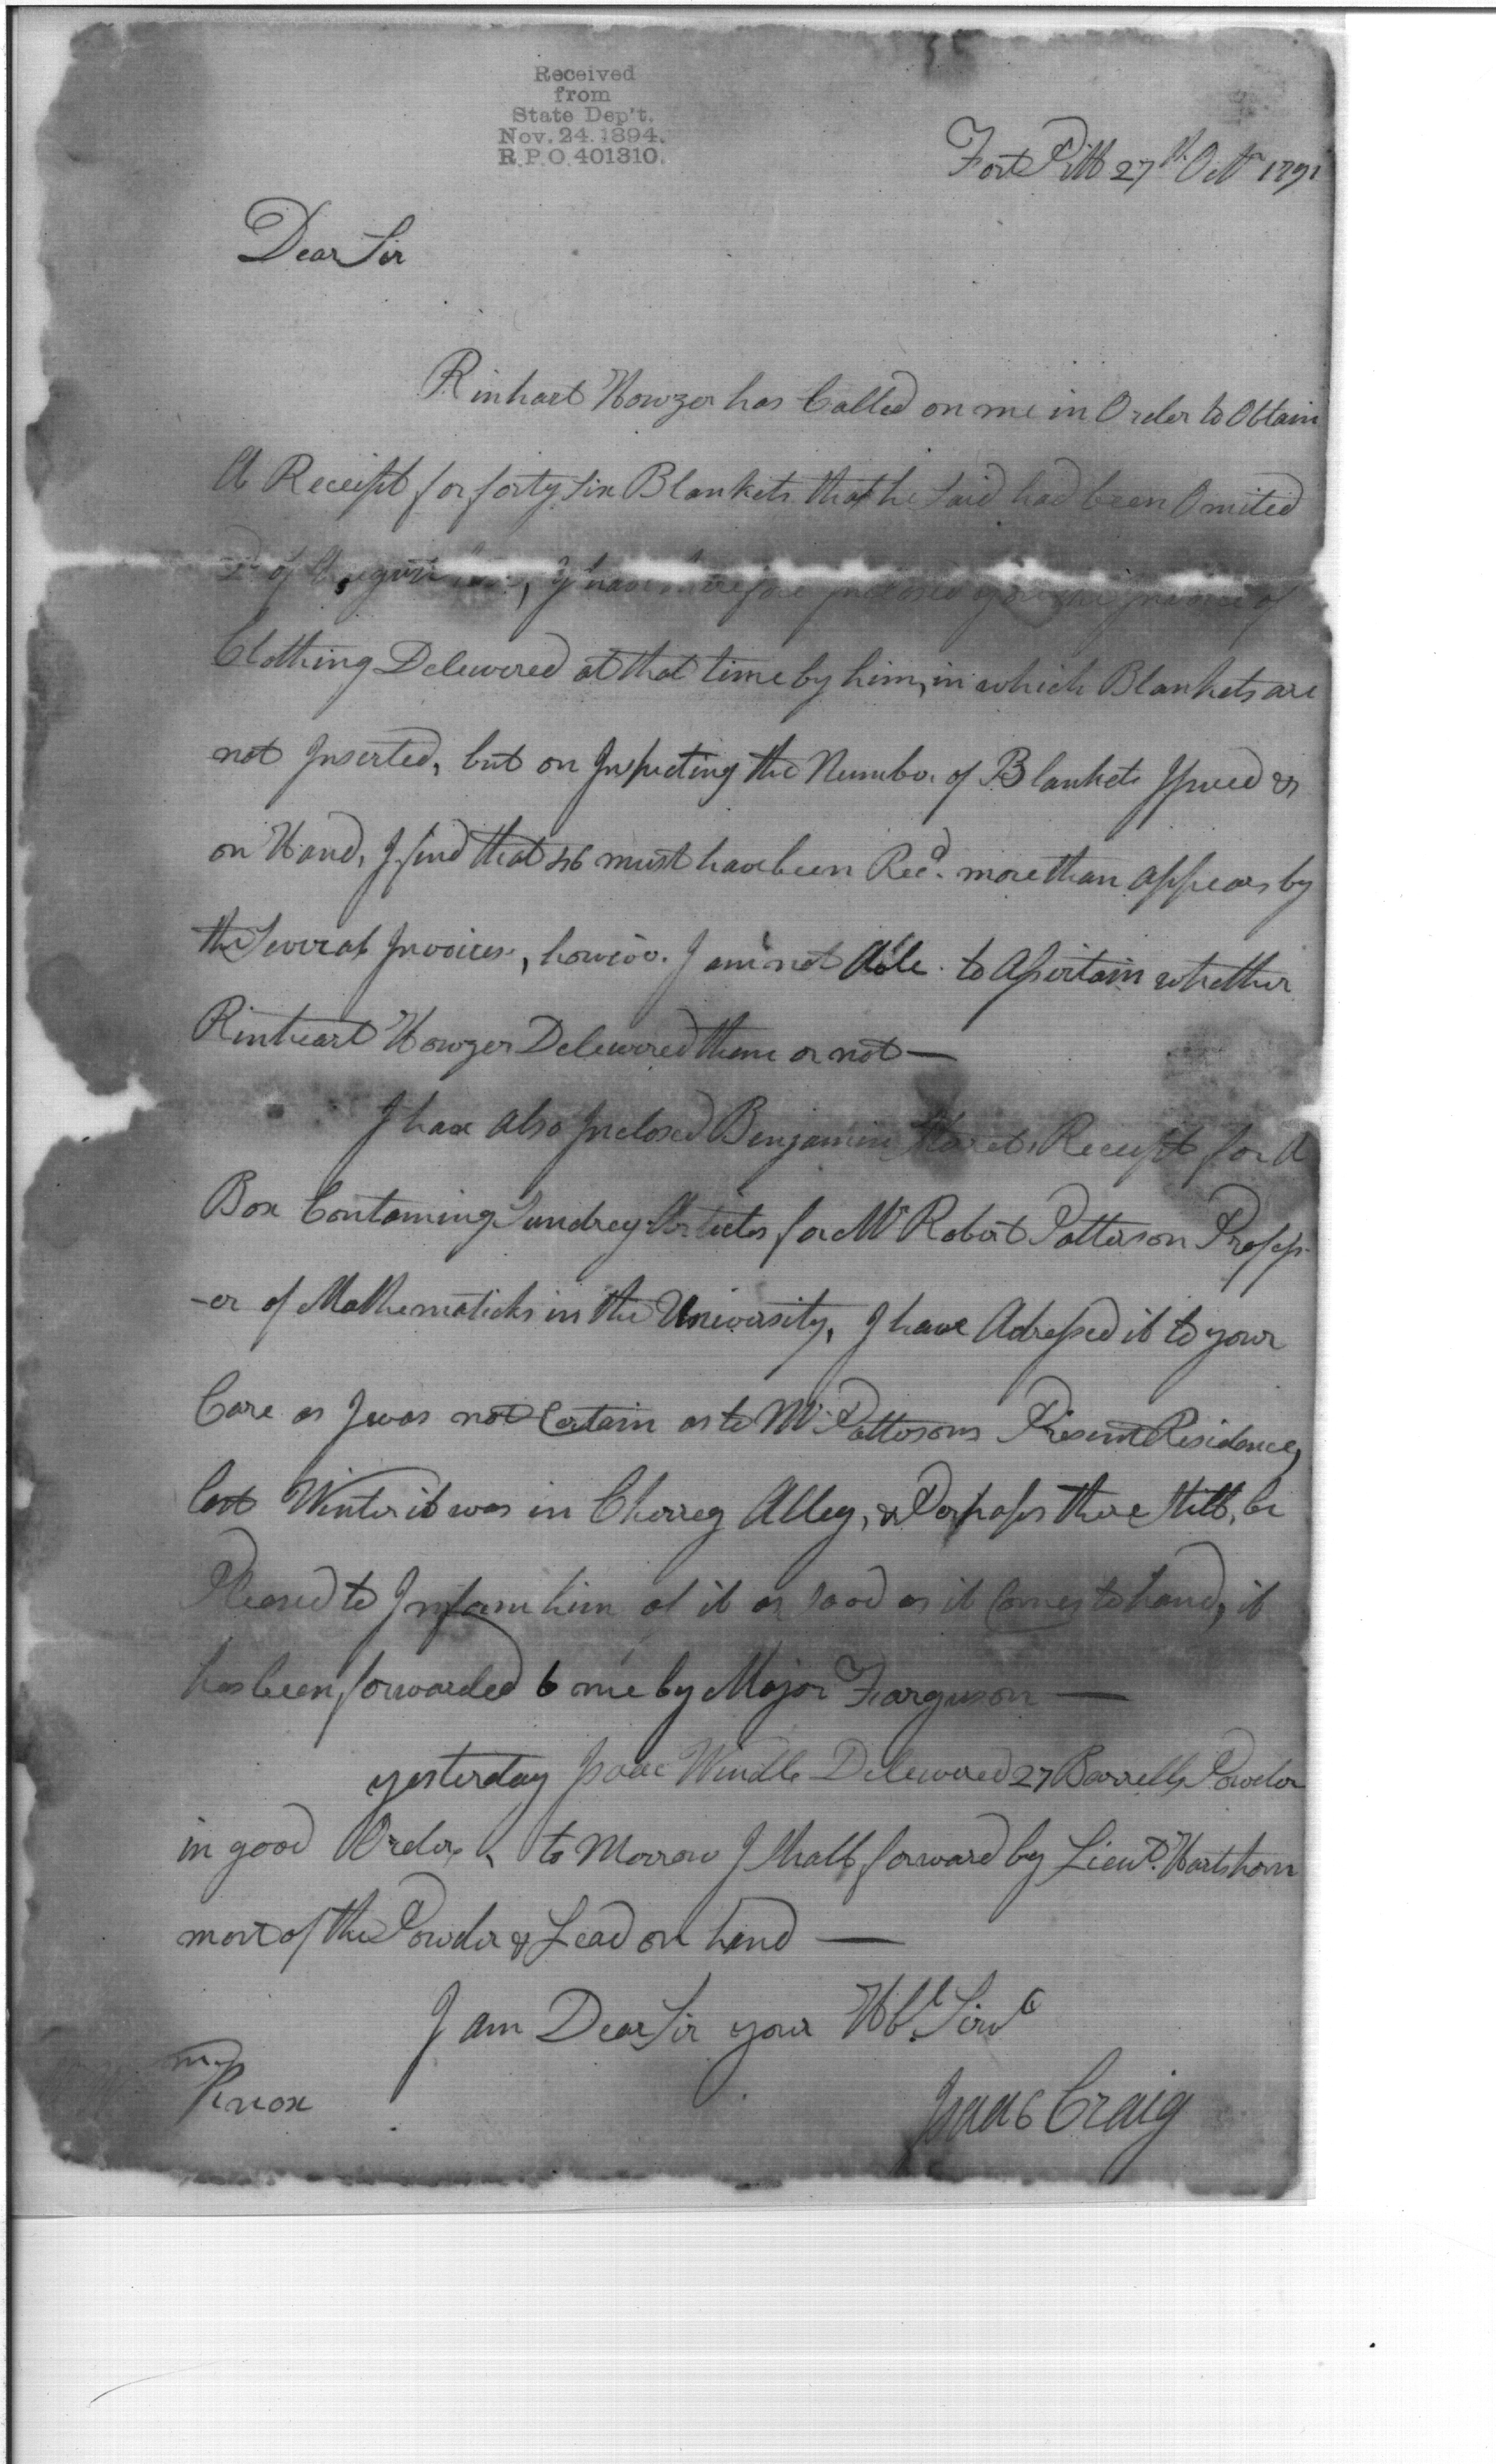 Received
from
State Dep't.
Nov. 24. 1894.
R.P.O. 401310.
Fort Pitt 27th Octr 1791
Dear Sir
Rinhart Howzer has Called on me in Order to Obtain
A Receipt for forty Six Blankets that he Said had been Omited
2d of August, I have therefore Inclosed you the Invoice of
Clothing Delewered at that time by him, in which Blankets are
not Inserted, but on Inspecting the Number of Blankets Issued &
on Hand, I find that 46 must have been Recd. more than appears by
the Several Invoices, however I am not Able to Assertain whether
Rinheart Howzer Delewered them or not —
I have also Inclosed Benjamin Receipt for A
Box Containing Sundrey Articles for Mr Robert Patterson Profess-
-or of Mathematicks in the University, I have Adressed it to your
Care as I was not Certain as to Mr Pattersons Present Residence,
last Winter it was in Cherrey Alley, & Perhaps there Still, be
Pleased to Inform him of it as sood as it Comes to hand, it
has been forwarded to me by Major Farguson —
yesterday Isaac Windle Delewered 27 Barrells Powder
in good Order, to Morrow I Shall forward by Lieut. Hartshorn
most of the Powder & Lead on hand —
I am Dear Sir your Hbl. Servt
Knox
Isaac Craig